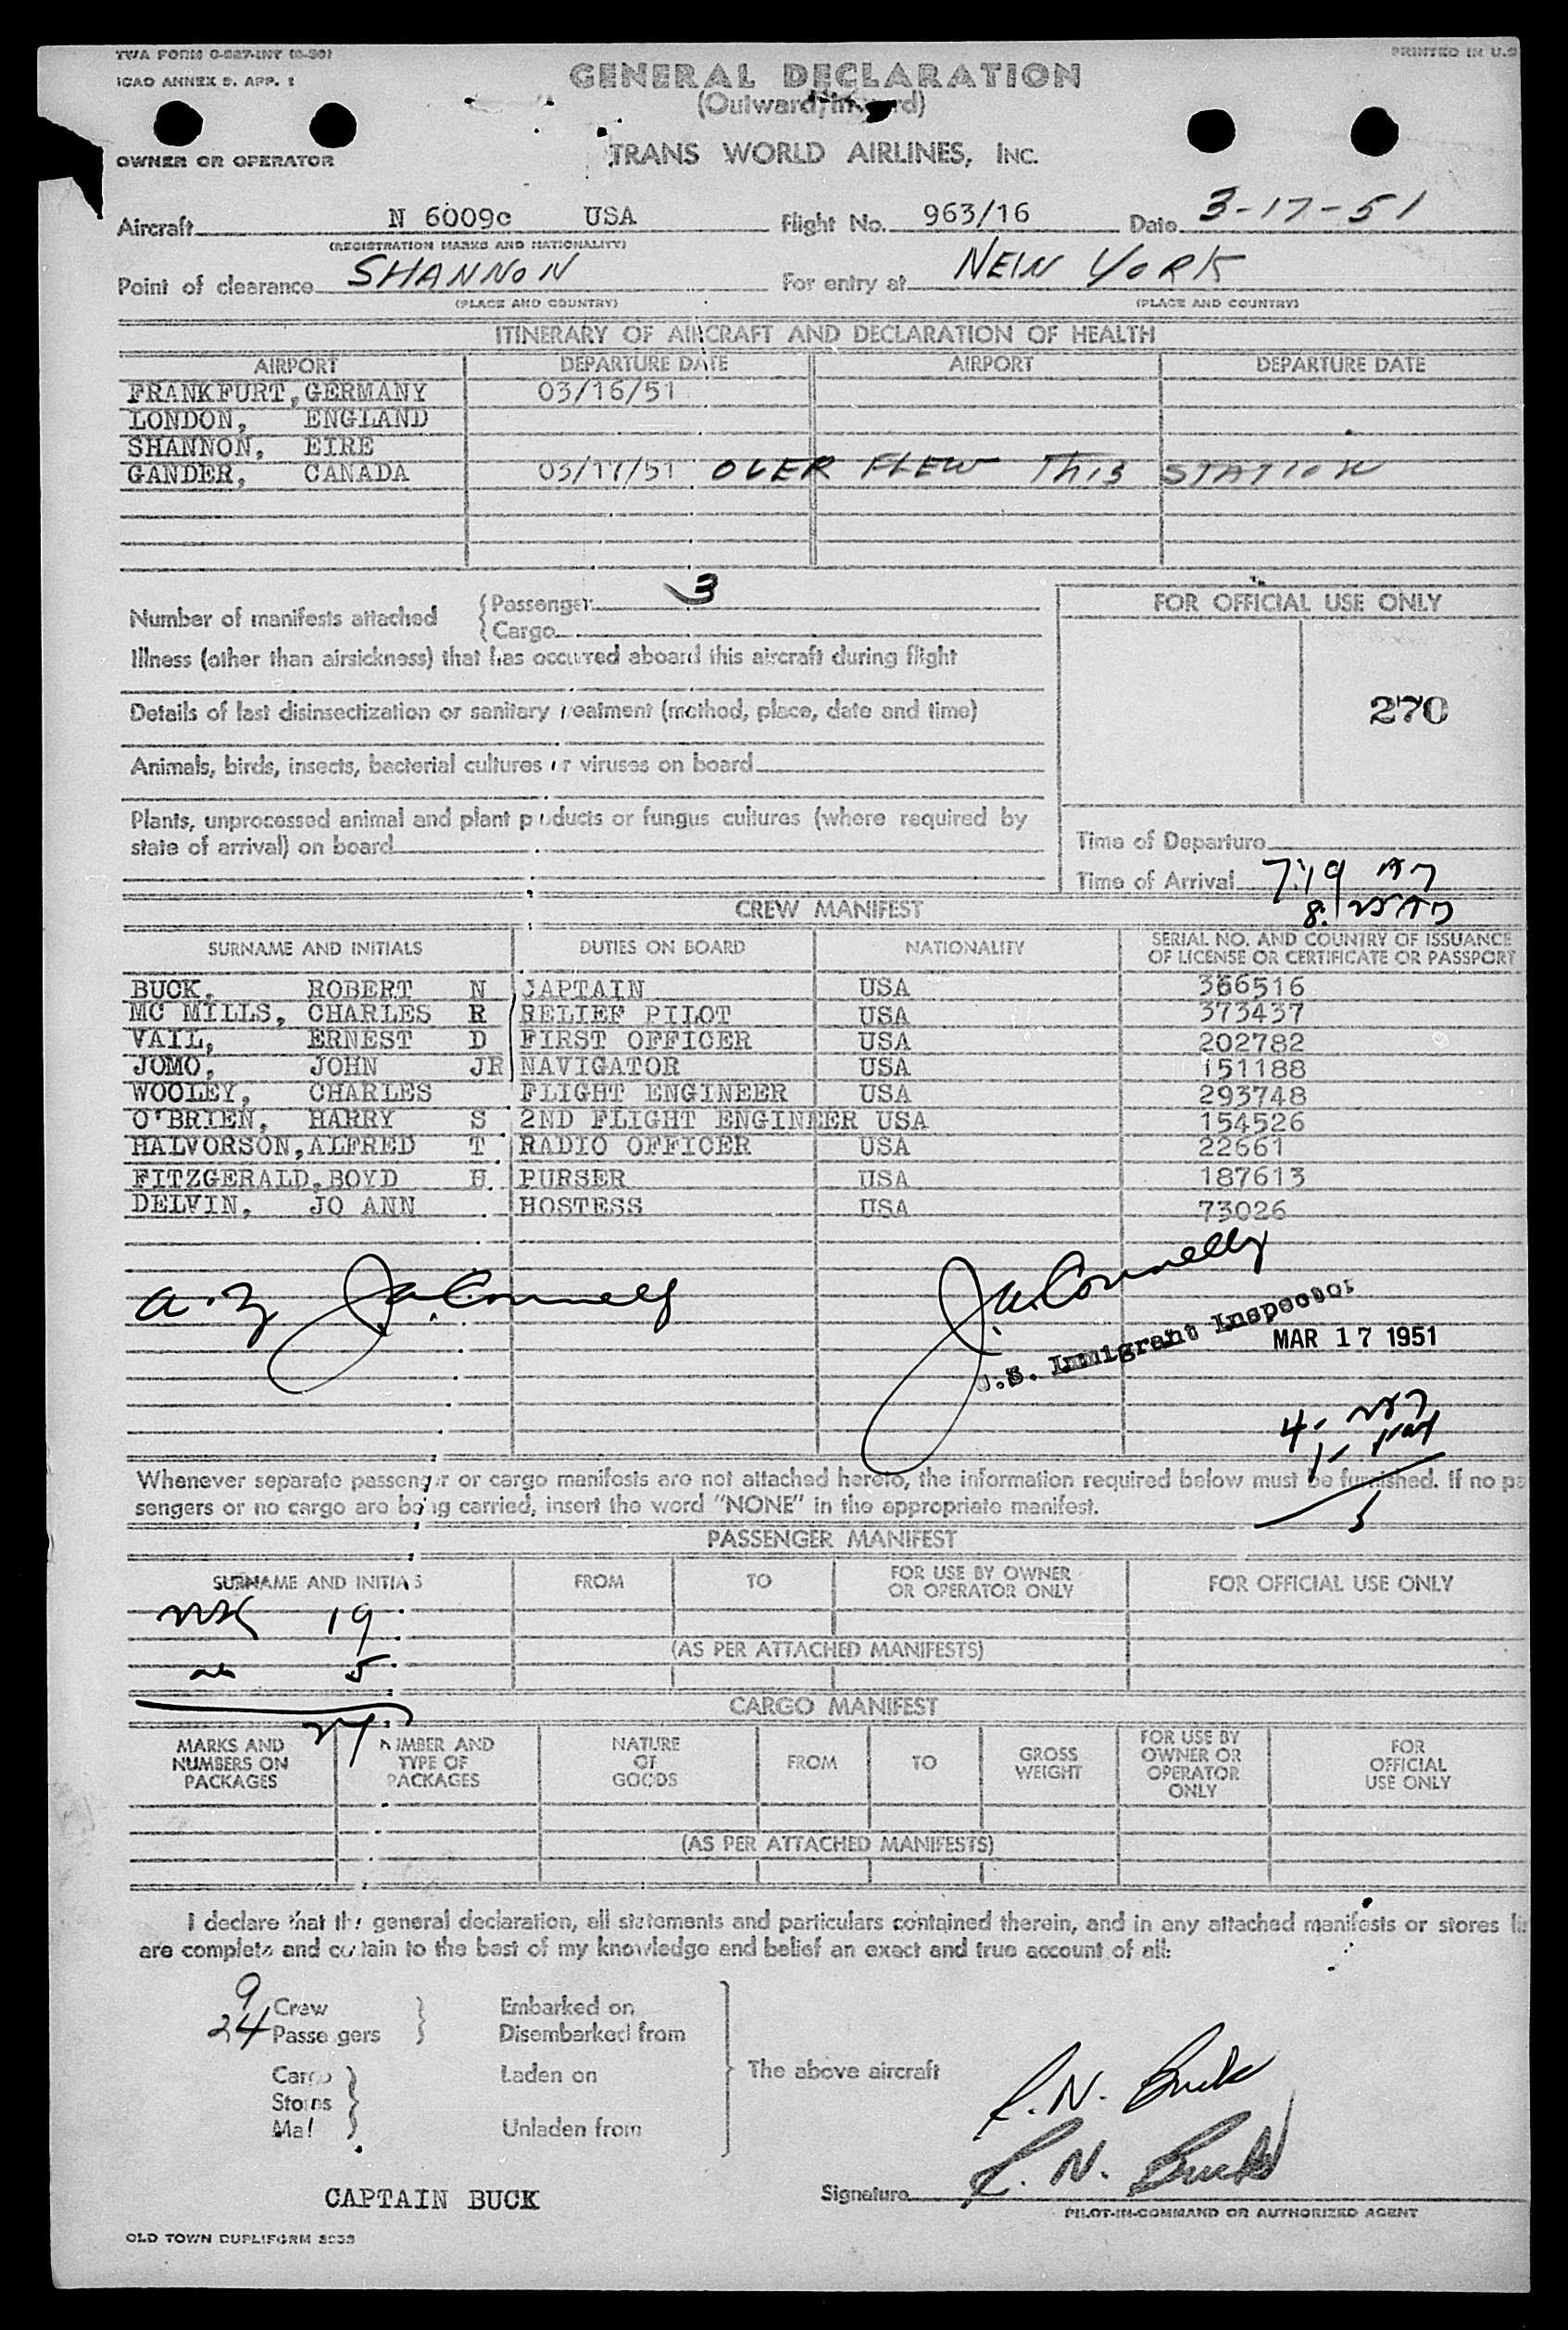 TWA FORM O-827-INT (8-50)
PRINTED IN U.S
ICAO ANNEX 9. APP. 1
GENERAL DECLARATION
(Outward/Inward)
OWNER OR OPERATOR
TRANS WORLD AIRLINES, INC.
Aircraft N 6009c USA Flight No. 963/16 Date 3-17-51
(REGISTRATION MARKS AND NATIONALITY)
Point of clearance SHANNON For entry at NEW YORK
(PLACE AND COUNTRY) (PLACE AND COUNTRY)
ITINERARY OF AIRCRAFT AND DECLARATION OF HEALTH
AIRPORT DEPARTURE DATE AIRPORT DEPARTURE DATE
FRANKFURT, GERMANY 03/16/51
LONDON, ENGLAND
SHANNON, EIRE
GANDER, CANADA 03/17/51 OVER FLEW THIS STATION
Number of manifests attached Passenger 3
Cargo
FOR OFFICIAL USE ONLY
Illness (other than airsickness) that has occurred aboard this aircraft during flight
Details of last disinsectization or sanitary treatment (method, place, date and time)
270
Animals, birds, insects, bacterial cultures or viruses on board
Plants, unprocessed animal and plant products or fungus cultures (where required by
state of arrival) on board
Time of Departure
Time of Arrival 7:19 A
CREW MANIFEST
SURNAME AND INITIALS DUTIES ON BOARD NATIONALITY SERIAL NO. AND COUNTRY OF ISSUANCE
OF LICENSE OR CERTIFICATE OR PASSPORT
BUCK, ROBERT N CAPTAIN USA 366516
MC MILLS, CHARLES R RELIEF PILOT USA 373437
VAIL, ERNEST D FIRST OFFICER USA 202782
JOMO, JOHN JR NAVIGATOR USA 151188
WOOLEY, CHARLES FLIGHT ENGINEER USA 293748
O'BRIEN, HARRY S 2ND FLIGHT ENGINEER USA 154526
HALVORSON, ALFRED T RADIO OFFICER USA 22661
FITZGERALD, BOYD H. PURSER USA 187613
DELVIN, JO ANN HOSTESS USA 73026
J.A. Connelly
J.A. Connelly
U.S. Immigrant Inspector
MAR 17 1951
Whenever separate passenger or cargo manifests are not attached hereto, the information required below must be furnished. If no pa
sengers or no cargo are being carried, insert the word "NONE" in the appropriate manifest.
PASSENGER MANIFEST
SURNAME AND INITIALS FROM TO FOR USE BY OWNER
OR OPERATOR ONLY FOR OFFICIAL USE ONLY
19
(AS PER ATTACHED MANIFESTS)
5
24
CARGO MANIFEST
MARKS AND
NUMBERS ON
PACKAGES
NUMBER AND
TYPE OF
PACKAGES
NATURE
OF
GOODS
FROM
TO
GROSS
WEIGHT
FOR USE BY
OWNER OR
OPERATOR
ONLY
FOR
OFFICIAL
USE ONLY
(AS PER ATTACHED MANIFESTS)
I declare that the general declaration, all statements and particulars contained therein, and in any attached manifests or stores li
are complete and certain to the best of my knowledge and belief an exact and true account of all:
9 Crew Embarked on
24 Passengers Disembarked from
Cargo Laden on The above aircraft
Stores
Mail Unladen from
R. N. Buck
CAPTAIN BUCK Signature R. N. Buck
PILOT-IN-COMMAND OR AUTHORIZED AGENT
OLD TOWN DUPLIFORM